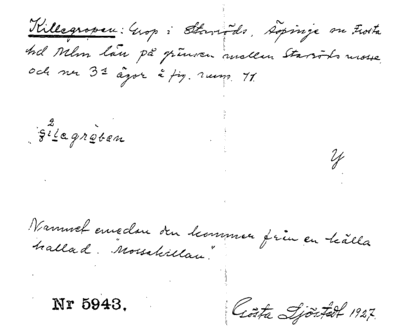 Killegropen: Grop i Stavröds, Äspinge sn Frosta
hd Mlm län på gränsen mellan Stavröds mosse
och nr 3s ägor å fig. rum. 11.
2
gilegråben
y
Namnet emedan den kommer från en källa
kallad "Mossekillan."
Nr 5943.
Gösta Sjöstedt 1927.